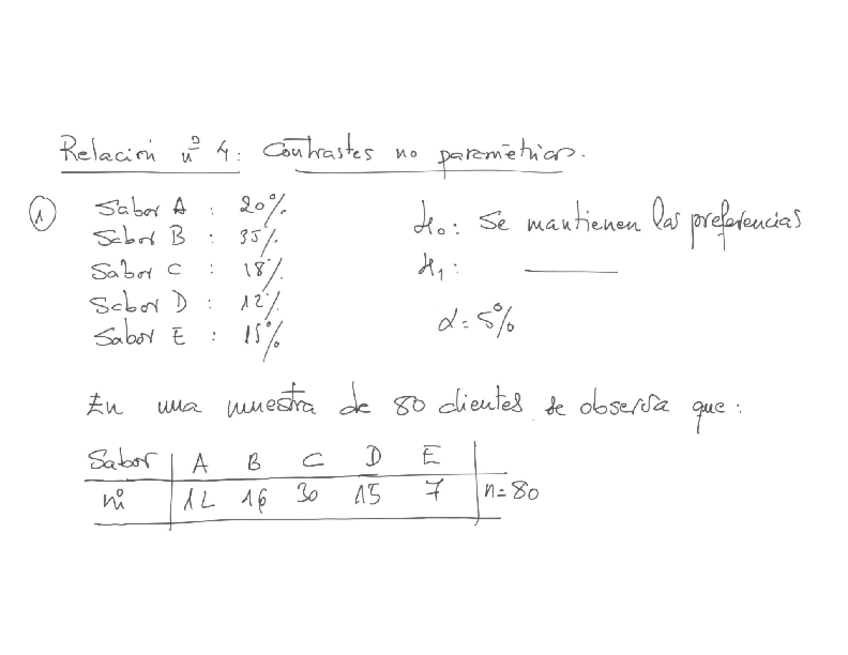 Relación nº 4: Contrastes no paramétricos.
① Sabor A : 20%
Sabor B : 35%
Sabor C : 18%
Sabor D : 12%
Sabor E : 15%
H₀: Se mantienen las preferencias
H₁: ______
α = 5%
En una muestra de 80 clientes se observa que:
Sabor | A B C D E
nᵢ | 12 16 30 15 7 | n = 80